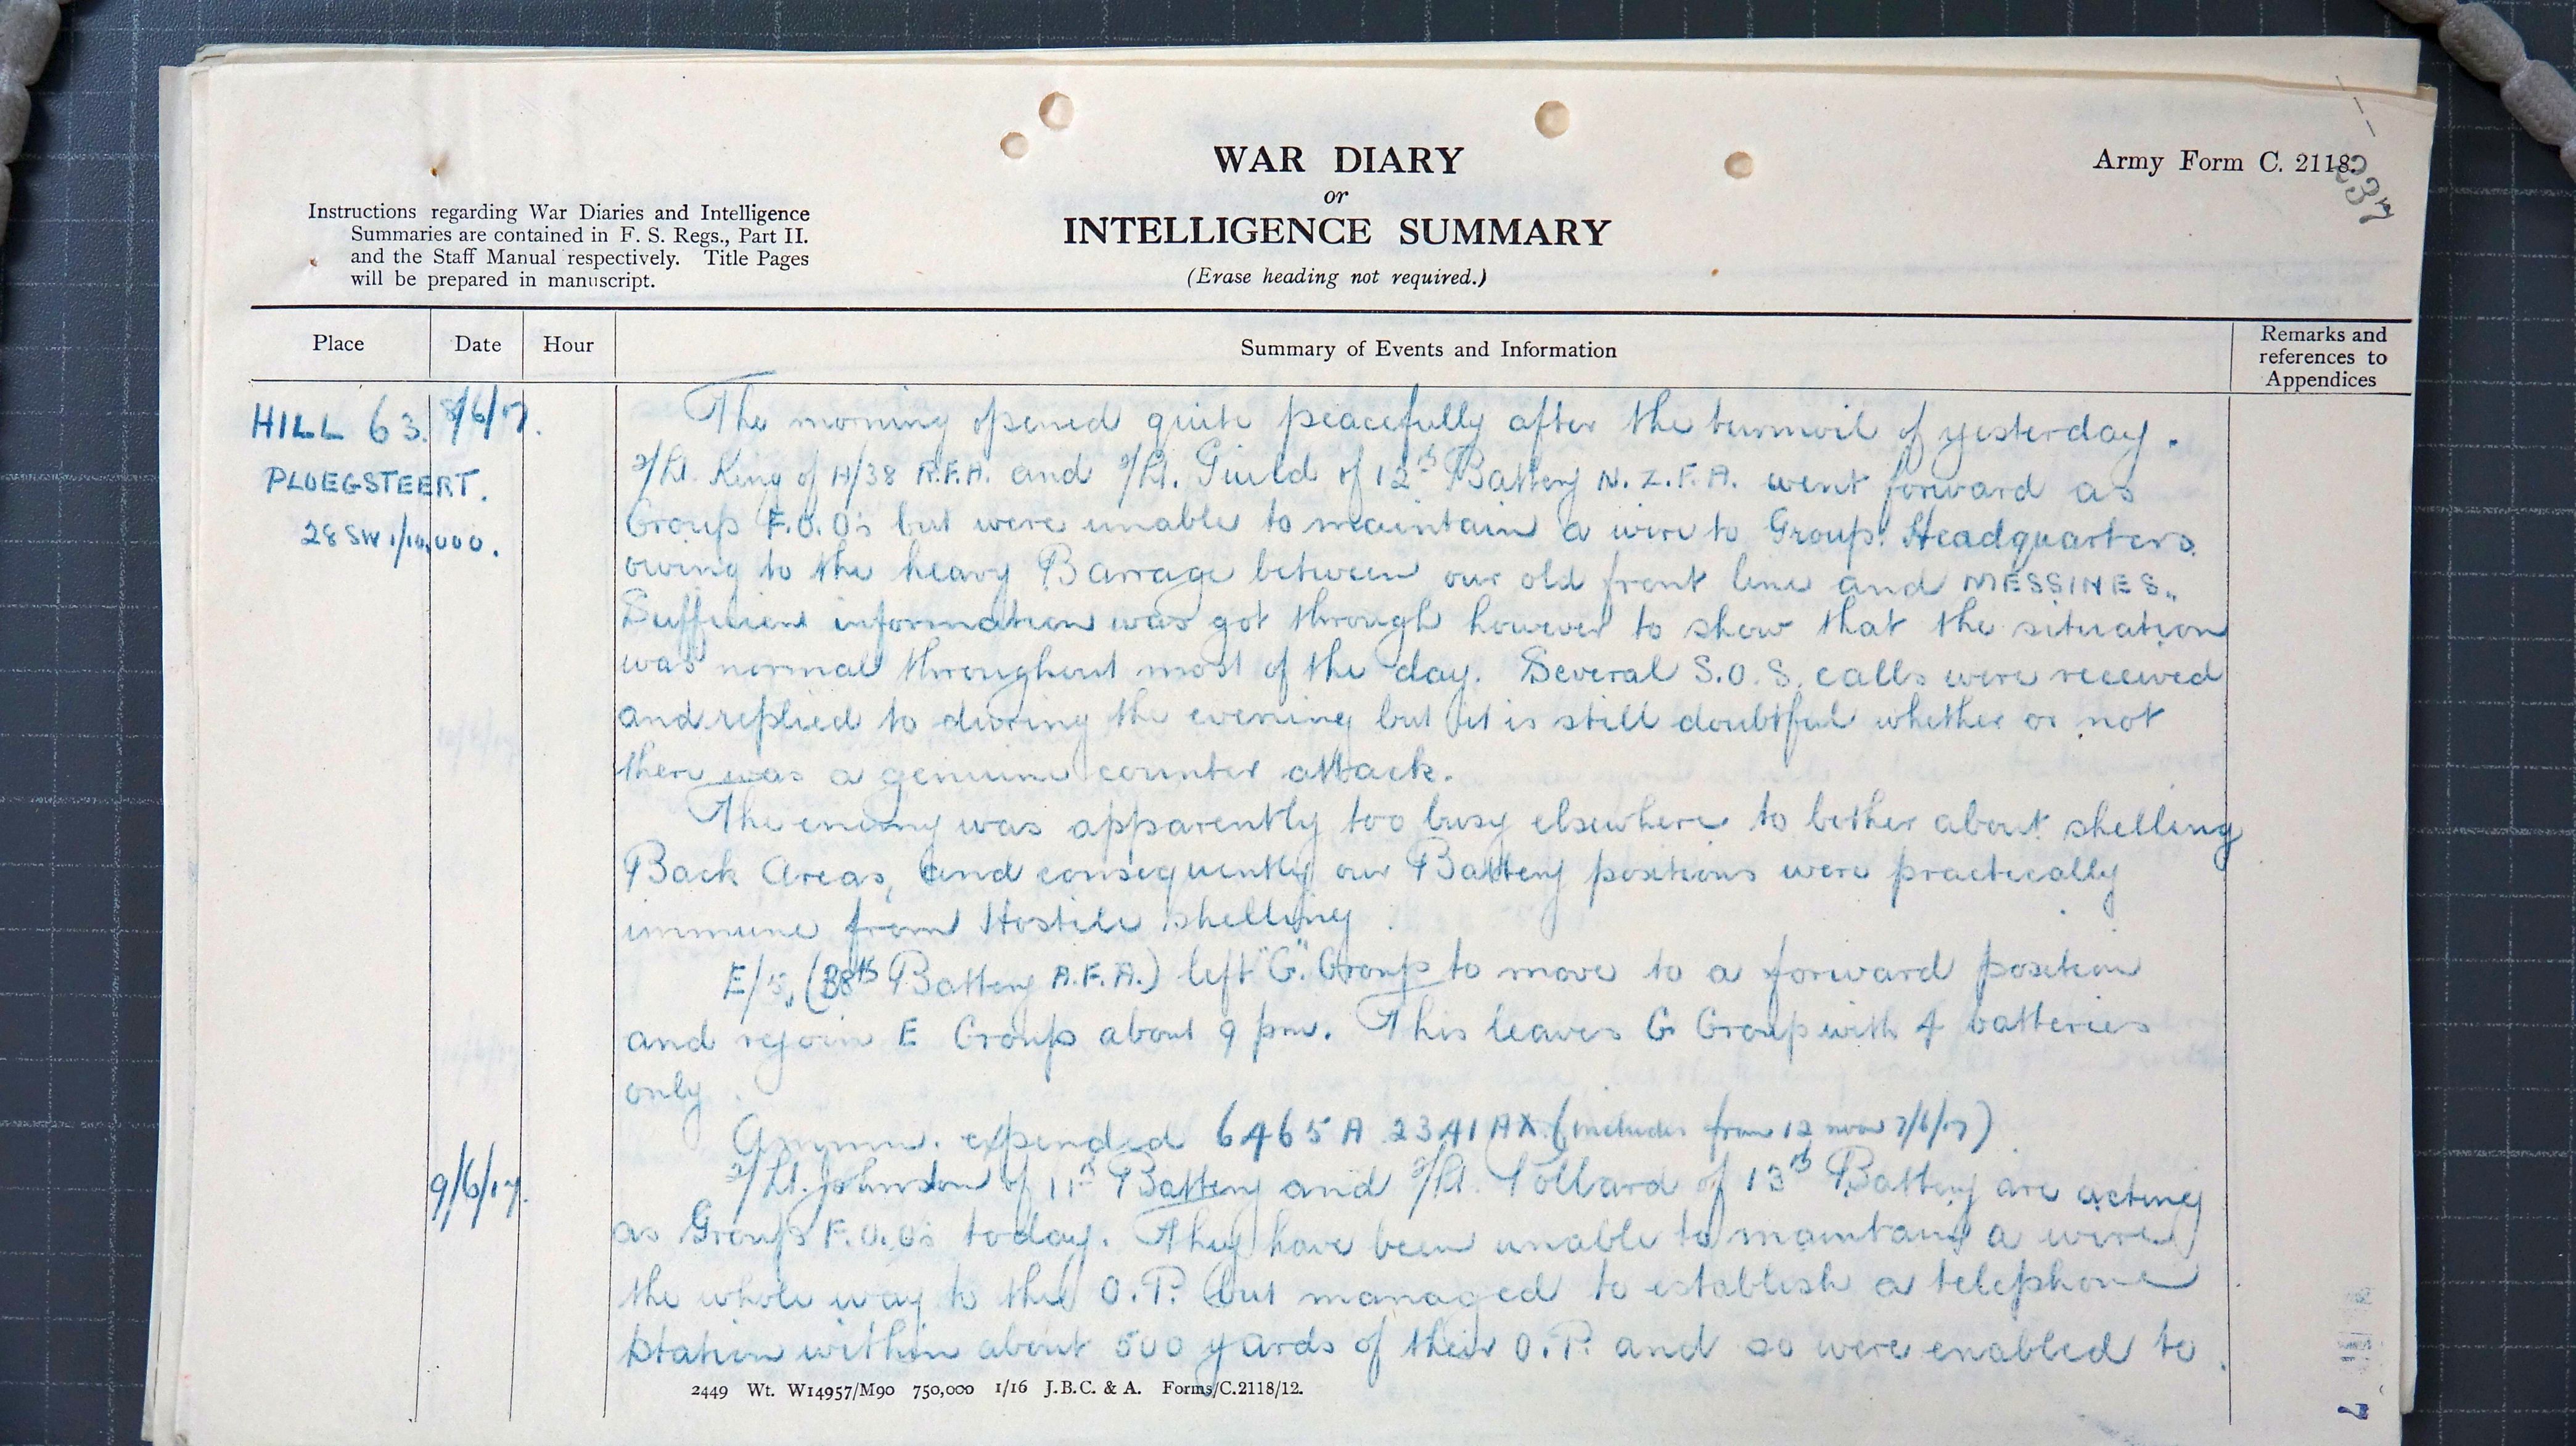 WAR DIARY
or
INTELLIGENCE SUMMARY
(Erase heading not required.)
Army Form C. 2118.
237
Instructions regarding War Diaries and Intelligence
Summaries are contained in F. S. Regs., Part II.
and the Staff Manual respectively. Title Pages
will be prepared in manuscript.
Place Date Hour Summary of Events and Information Remarks and references to Appendices
HILL 63. 8/6/17.
PLOEGSTEERT.
28 SW 1/10,000.
The morning opened quite peacefully after the turmoil of yesterday.
2/Lt. King of A/38 R.F.A. and 2/Lt. Guild of 12th Battery N.Z.F.A. went forward as
Group F.O.O's but were unable to maintain a wire to Group Headquarters
owing to the heavy Barrage between our old front line and MESSINES.
Sufficient information was got through however to show that the situation
was normal throughout most of the day. Several S.O.S. calls were received
and replied to during the evening but it is still doubtful whether or not
there was a genuine counter attack.
The enemy was apparently too busy elsewhere to bother about shelling
Back Areas, and consequently our Battery positions were practically
immune from Hostile shelling.
E/5, (38th Battery A.F.A.) left "G." Group to move to a forward position
and rejoin E Group about 9 pm. This leaves G Group with 4 batteries
only.
Ammn. expended 6465 A 2341 AX. (includes from 12 noon 7/6/17)
9/6/17. 2/Lt. Johnston of 11th Battery and 2/Lt. of 13th Battery are acting
as Group F.O.O's today. They have been unable to maintain a wire
the whole way to the O.P. but managed to establish a telephone
station within about 500 yards of their O.P. and so were enabled to
2449 Wt. W14957/M90 750,000 1/16 J.B.C. & A. Forms/C.2118/12.